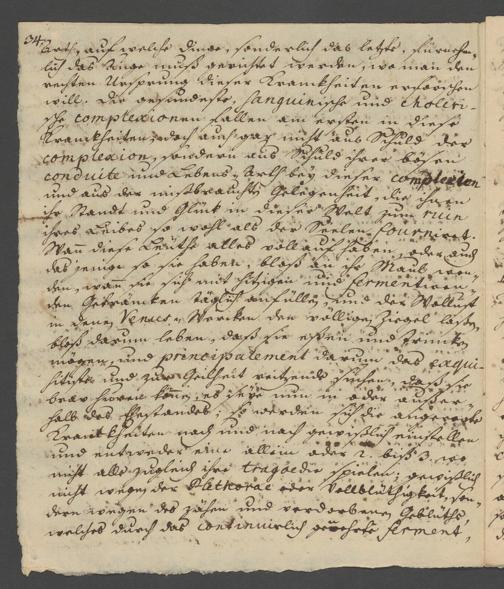 34.
Arth, auf welche dinge, sonderlich das letzte, fürnehm-
lich das Auge muß gerichtet werden, wo man den
rechten Ursprung dieser Kranckheiten erforschen
will. Die gesündeste, sanguinische und choleri-
sche complexionen fallen am ersten in diese
Kranckheiten, doch auch gar nicht aus Schuld der
complexion, sondern aus Schuld ihrer bösen
conduite und Lebens-Arth bey dieser complexion
und aus der mißbrauchten Gelegenheit, die ihnen
ihr Standt und Glück in dieser Welt zum ruin
ihres Leibes so wohl als der Seelen fourniret.
Wann diese Leuthe alles voll auf haben, oder auch
das jenige so sie haben, bloß an ihr Maul wen-
den, wan sie sich mit hitzigen und fermentiren-
den Geträncken täglich anfüllen, und der Wollust
in denen Venus-Wercken den völligen Ziegel laßen,
bloß darum leben, daß sie eßen und trincken
mögen, und principalement darum das exqui-
siteste und zur Geilheit reitzende suchen, daß sie
brav huren können, es seye nun in oder außer-
halb des Ehestandes; so werden sich die angeregte
Kranckheiten nach und nach gewißlich einstellen
und entweder eine allein oder 2. biß 3. wo
nicht alle zugleich ihre tragoedie spielen; gewißlich
nicht wegen der Plethorae oder Vollblüthigkeit, son-
dern wegen des zähen und verdorbenen Geblüths,
welches durch das continuirlich ferment,